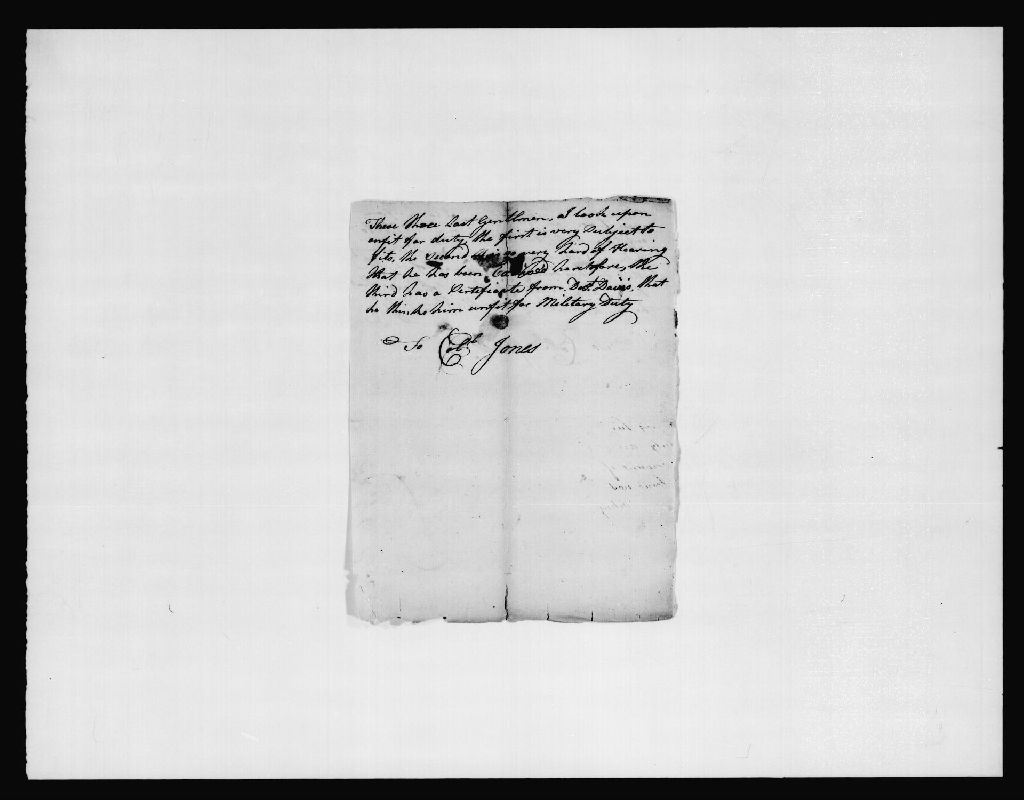 These three last Gentlmen, I look upon
unfit for duty, the first is very Subject to
fits, the second is so very hard of Hearing
that he has been heretofore, the
third has a Certificate from Doct. Davis, that
he thinks him unfit for Military Duty
To Coll. Jones